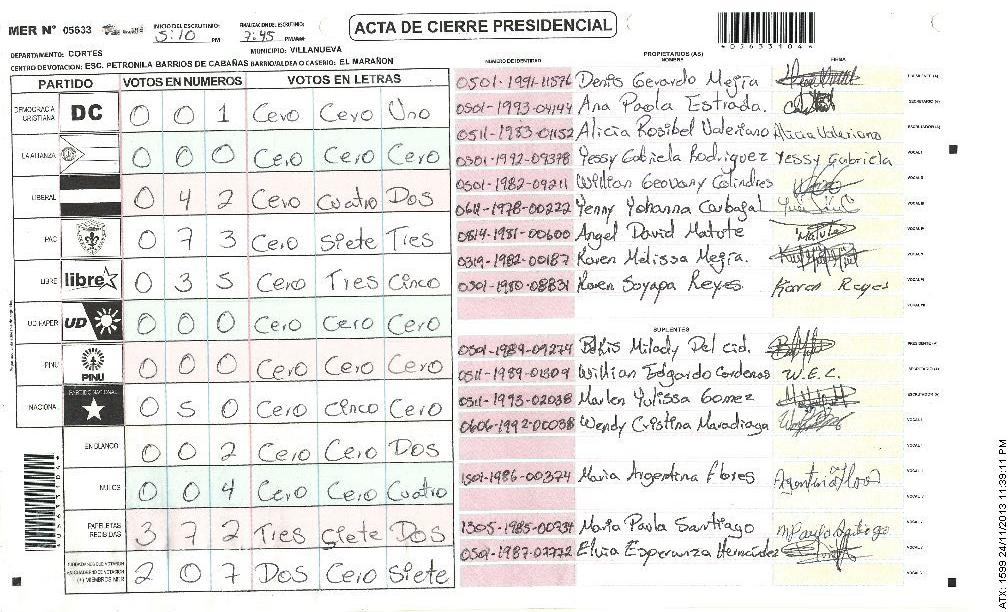 MER Nº 05633
INICIO DEL ESCRUTINIO: 5:10 PM
FINALIZACION DEL ESCRUTINIO: 7:45 PM
ACTA DE CIERRE PRESIDENCIAL
*05633104*
DEPARTAMENTO: CORTES
MUNICIPIO: VILLANUEVA
CENTRO DE VOTACION: ESC. PETRONILA BARRIOS DE CABAÑAS BARRIO/ALDEA O CASERIO: EL MARAÑON
PARTIDO VOTOS EN NUMEROS VOTOS EN LETRAS
DEMOCRACIA CRISTIANA DC 0 0 1 Cero Cero Uno
LA ALIANZA 0 0 0 Cero Cero Cero
LIBERAL 0 4 2 Cero Cuatro Dos
PAC 0 7 3 Cero Siete Tres
LIBRE libre 0 3 5 Cero Tres Cinco
UD-FAPER UD 0 0 0 Cero Cero Cero
PINU PINU 0 0 0 Cero Cero Cero
NACIONA PARTIDO NACIONAL 0 5 0 Cero Cinco Cero
EN BLANCO 0 0 2 Cero Cero Dos
NULOS 0 0 4 Cero Cero Cuatro
PAPELETAS RECIBIDAS 3 7 2 Tres Siete Dos
2 0 7 Dos Cero Siete
PROPIETARIOS (AS)
NUMERO DE IDENTIDAD NOMBRE FIRMA
0501-1991-11576 Denis Gerardo Mejia
0501-1993-04144 Ana Paola Estrada.
0511-1983-01152 Alicia Rosibel Valeriano Alicia Valeriano
0501-1992-09378 Yessy Gabriela Rodriguez Yessy Gabriela
0501-1982-09211 Willian Geovany Colindres
0611-1978-00222 Yenny Yohanna Carbajal
0814-1981-00600 Angel David Matute Matute
0319-1982-00187 Karen Melissa Mejia.
0501-1980-08831 Karen Soyapa Reyes Karen Reyes
SUPLENTES
0501-1989-09274 Belkis Milady Del cid.
0511-1989-01309 Willian Edgardo Cardenas W.E.C.
0511-1993-02038 Marlen Yulissa Gomez
0606-1992-00038 Wendy Cristina Maradiaga
1501-1986-00374 Maria Argentina Flores
1305-1985-00334 Maria Paula Santiago
0501-1987-02772 Elvia Esperanza Hernández
*05633104*
ATX: 1599 24/11/2013 11:39:11 PM